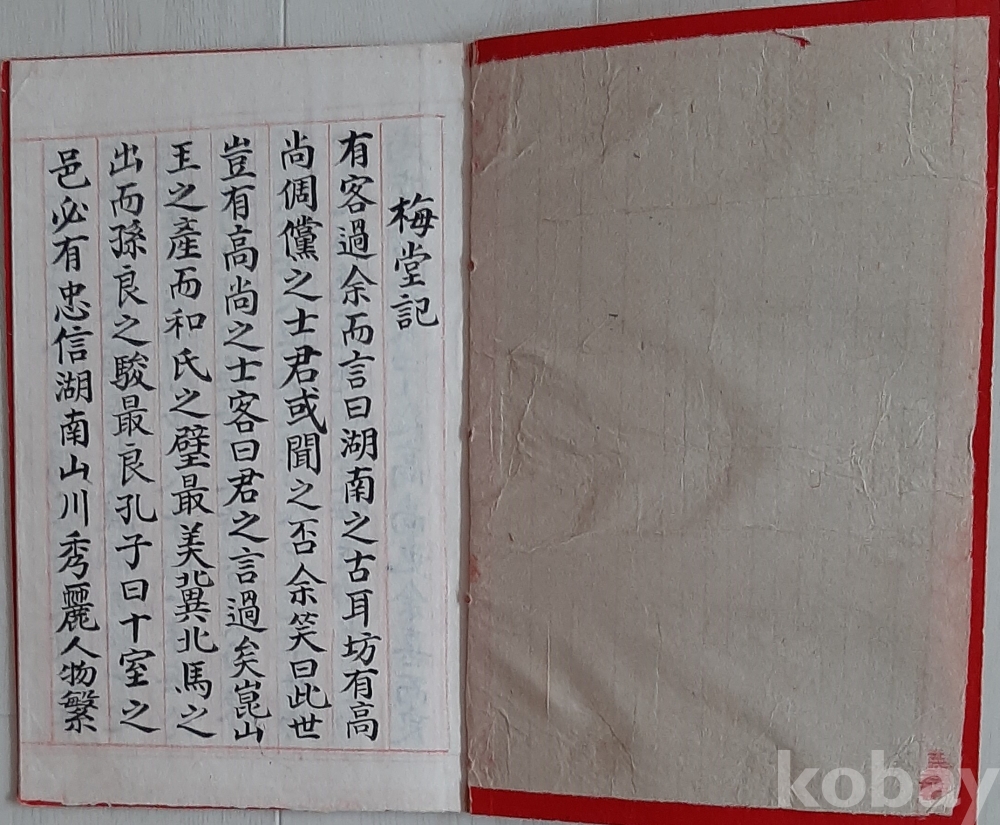 梅堂記
有客過余而言曰湖南之古耳坊有高
尚倜儻之士君或聞之否余笑曰此世
豈有高尚之士客曰君之言過矣崑山
玉之產而和氏之璧最美冀北馬之
出而孫良之駿最良孔子曰十室之
邑必有忠信湖南山川秀麗人物繁
kobay